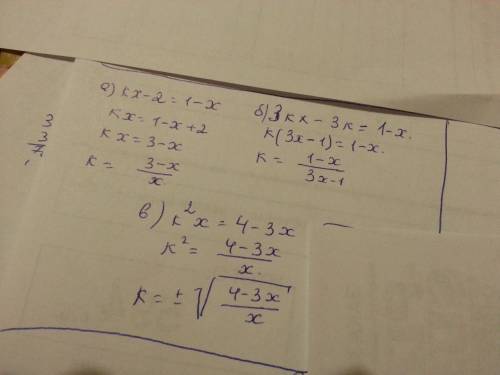 а) kx-2=1-x
kx=1-x+2
kx=3-x
k= \frac{3-x}{x}
б) 3kx-3k=1-x.
k(3x-1)=1-x.
k= \frac{1-x}{3x-1}
в) k²x=4-3x
k²= \frac{4-3x}{x.}
k=±\sqrt{\frac{4-3x}{x}}
3
3